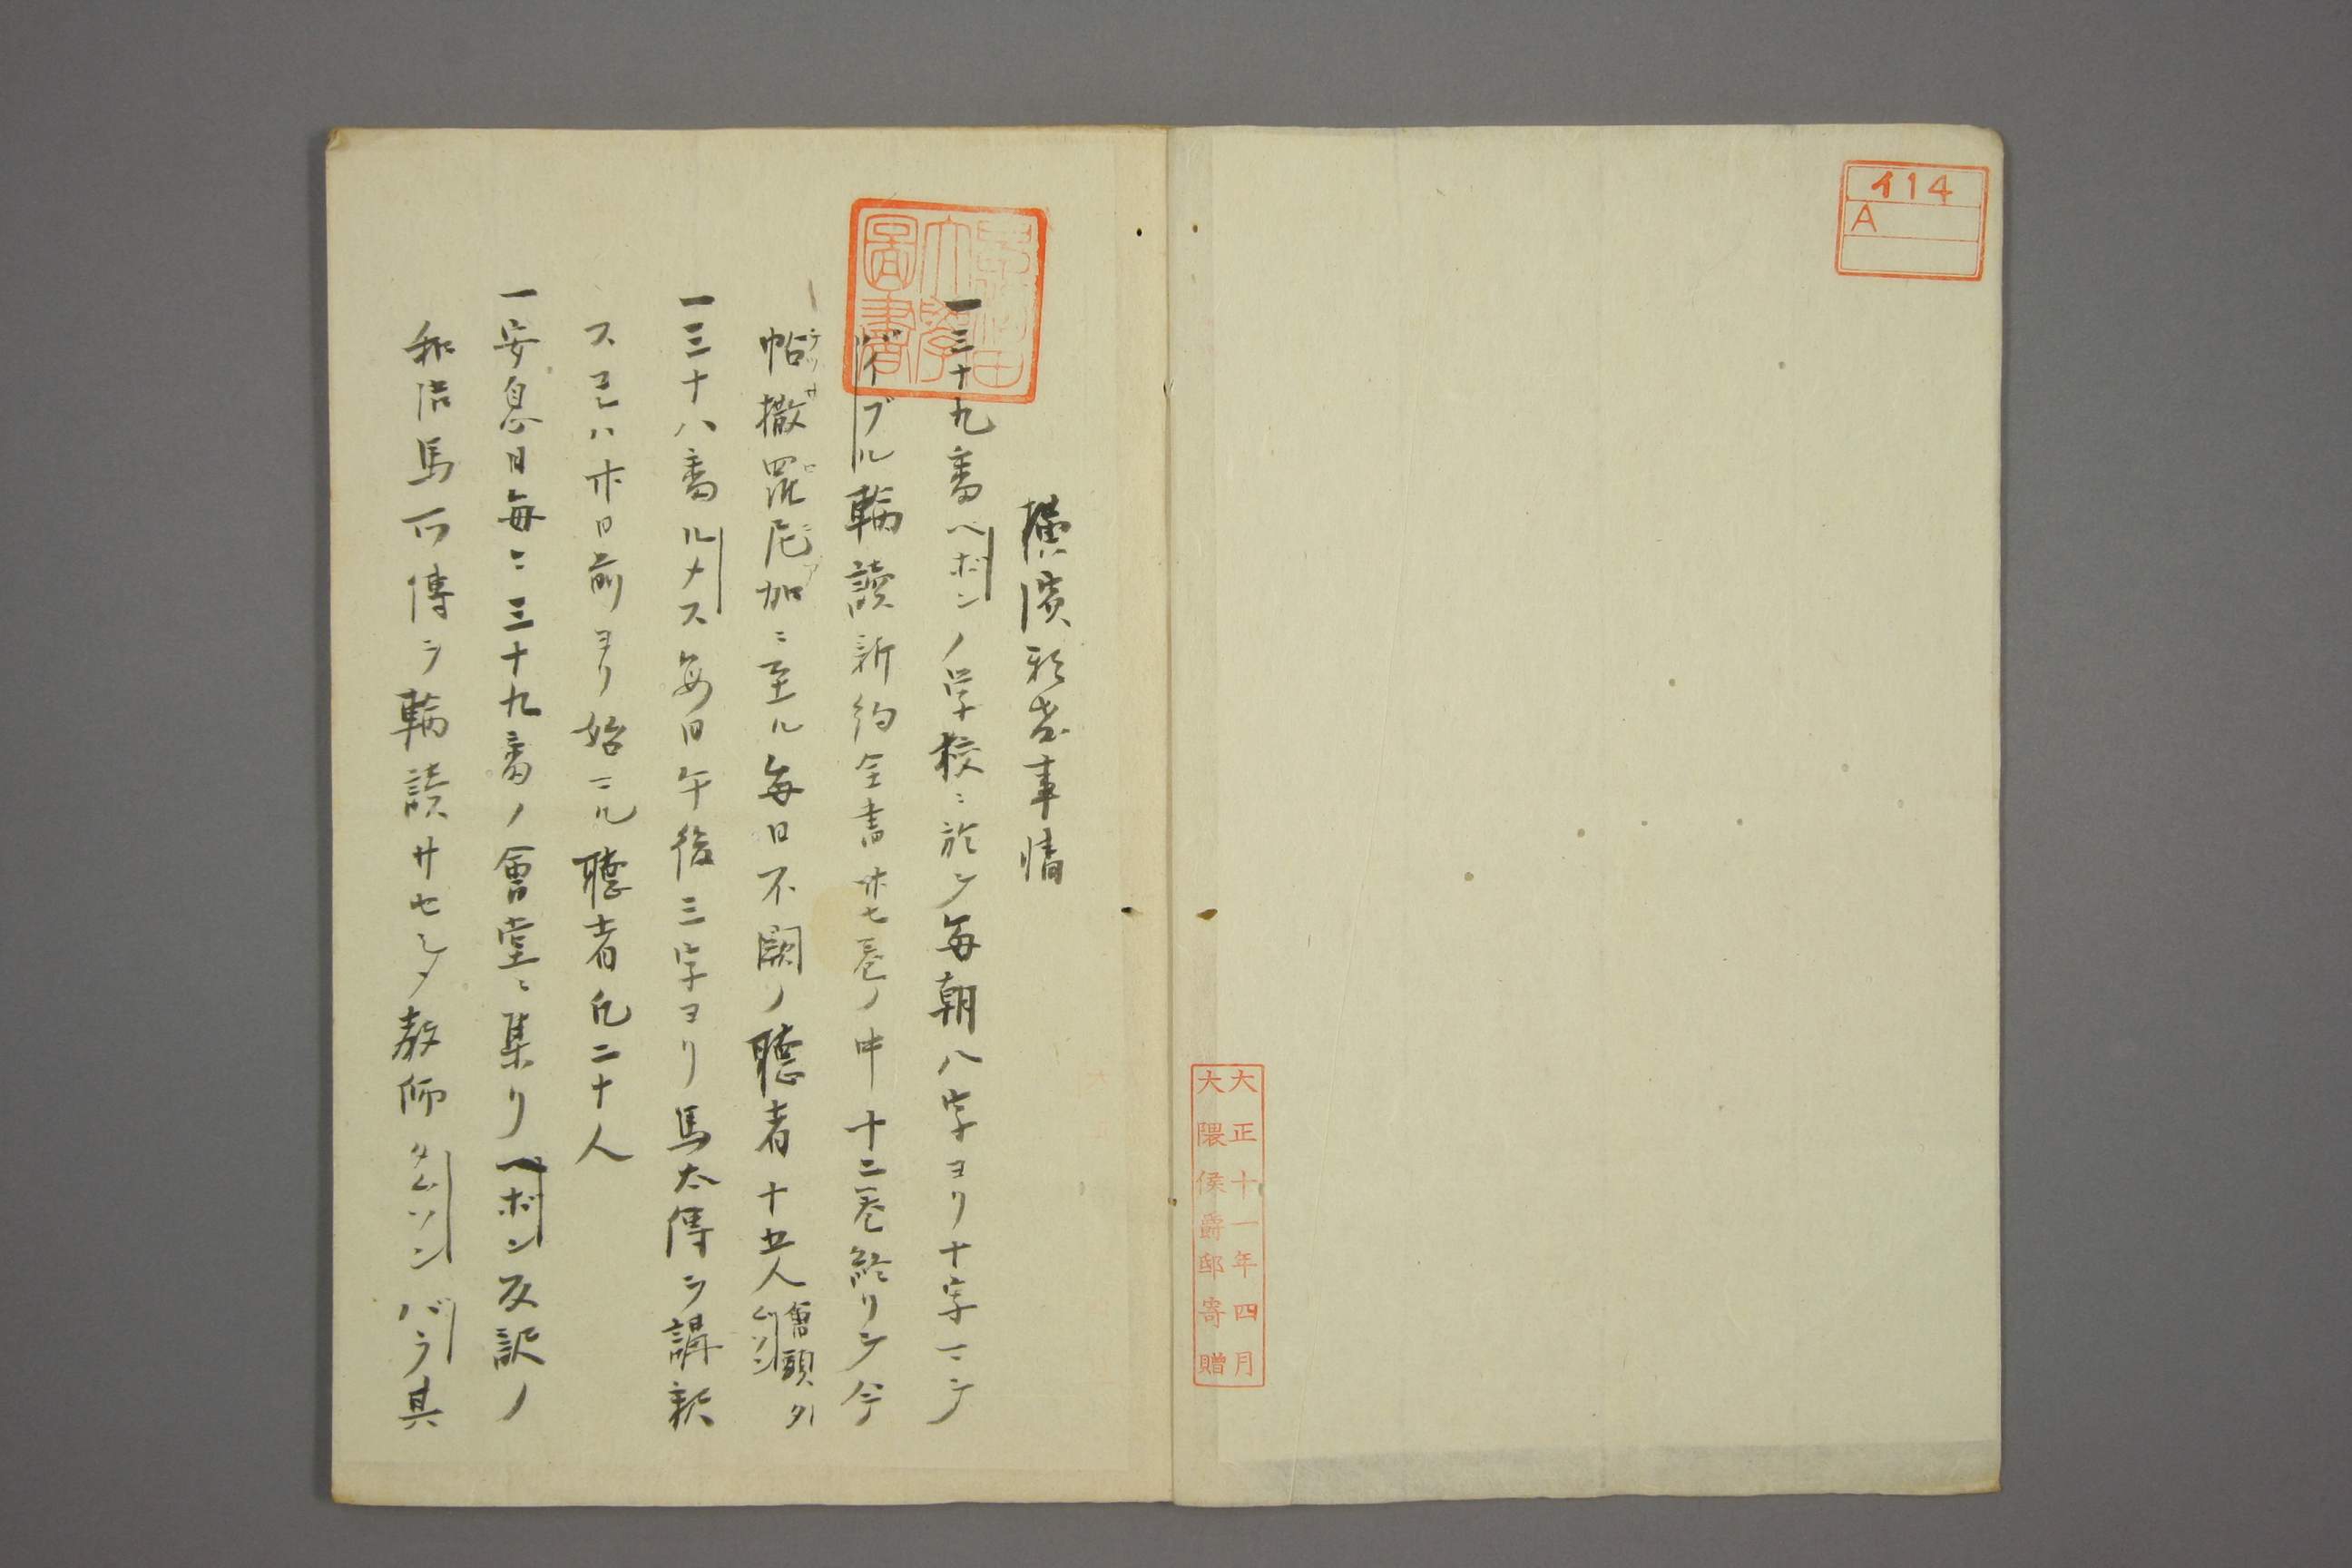 イ14
A
大正十一年四月
大隈侯爵邸寄贈
早稲田
大學
圖書
横濱邪教事情
一三十九番ヘボンノ学校ニ於テ毎朝八字ヨリ十字マテ
バイブル輪讀新約全書廿七巻ノ中十二巻終リテ今
帖撒羅尼加ニ至ル毎日不闕ノ聽者十五人會頭タムソン
一三十八番ルメス毎日午後三字ヨリ馬太傳ヲ講釈
スコレハ廿日前ヨリ始マル聽者凢二十人
一安息日毎ニ三十九番ノ會堂ニ集リヘボン反訳ノ
和語馬可傳ヲ輪讀サセシメ教師タムソンバラ其